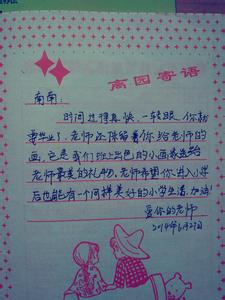 离园寄语
南南：
时间过得真快，一转眼你就
要毕业了，老师还保留着你给老师的
画，它是我们班上出色的小画家送给
老师最美的礼物。老师希望你进入小学
后也能有一个同样美好的小学生活，加油！
爱你的老师
2014年6月27日